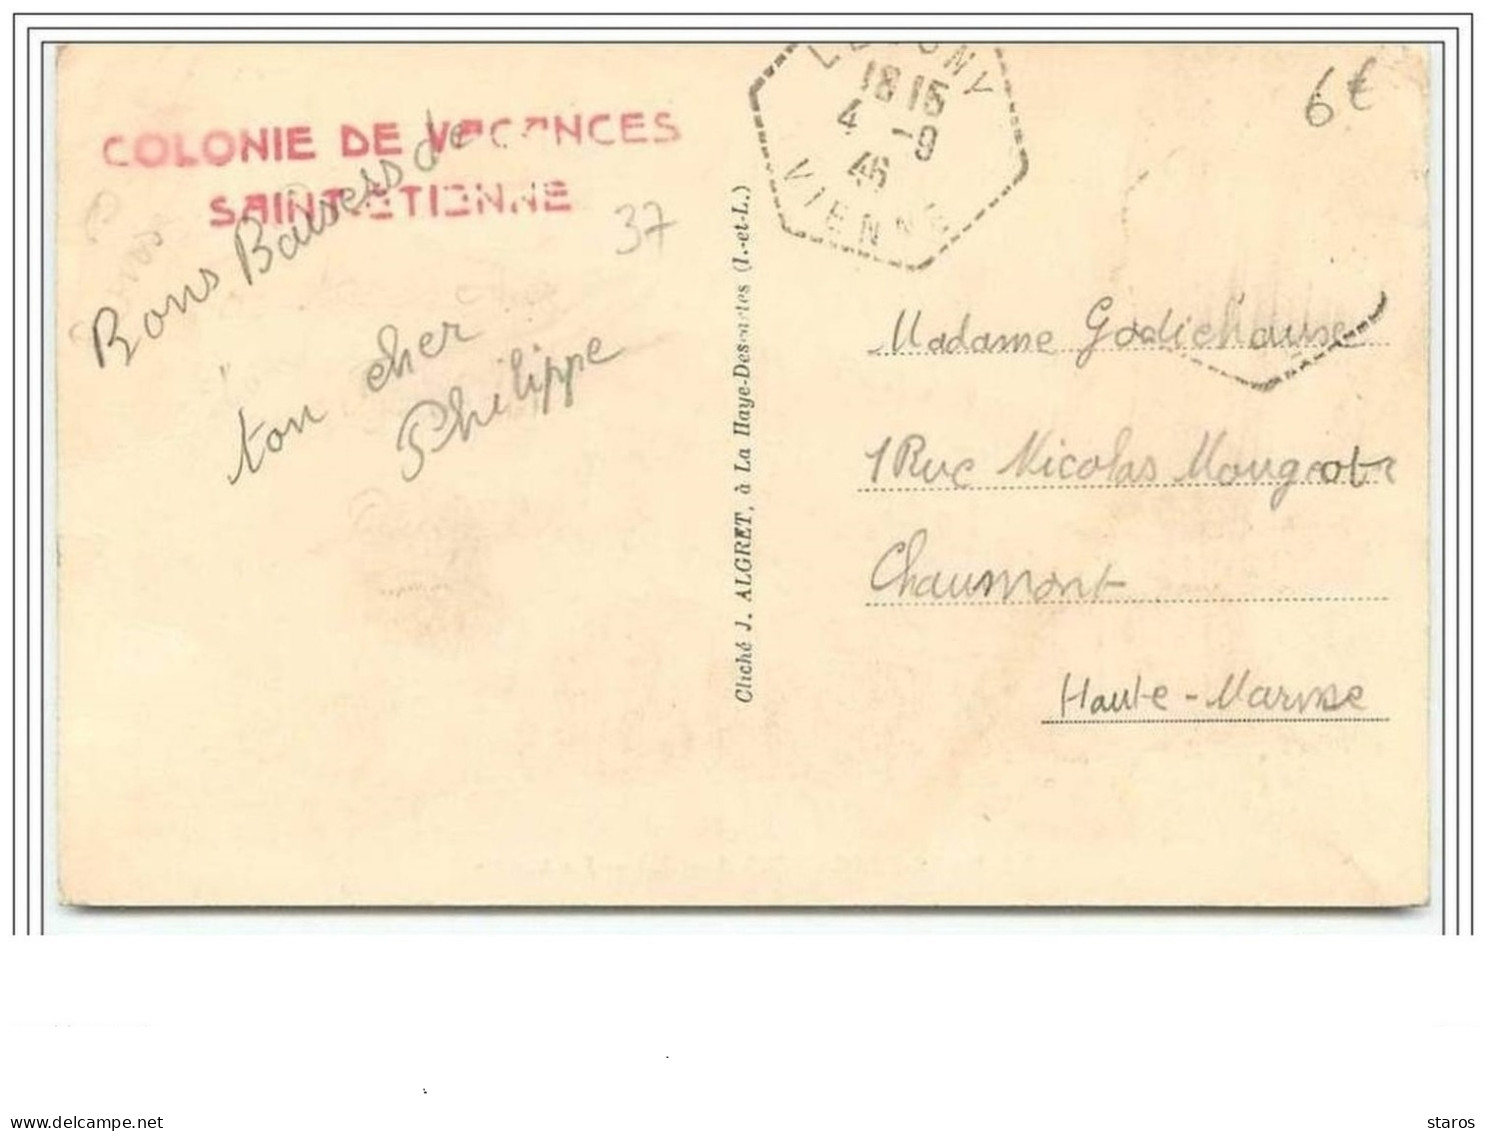 COLONIE DE VACANCES
SAINT-ETIENNE
Bons Baisers de
ton cher
Philippe
37
18 15
4 -9
46
VIENNE
6€
Cliché J. ALGRET, à La Haye-Descartes (I.-et-L.)
Madame Godichause
1 Rue Nicolas Mougeot
Chaumont
Haute-Marne
staros
delcampe.net